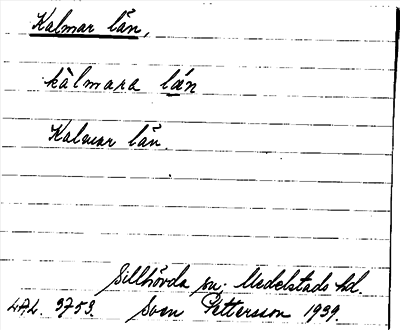 Kalmar län,
kàlmara lán
Kalmar län.
Sillhövda sn. Medelstads hd.
LAL. 3753. Sven Pettersson 1939.